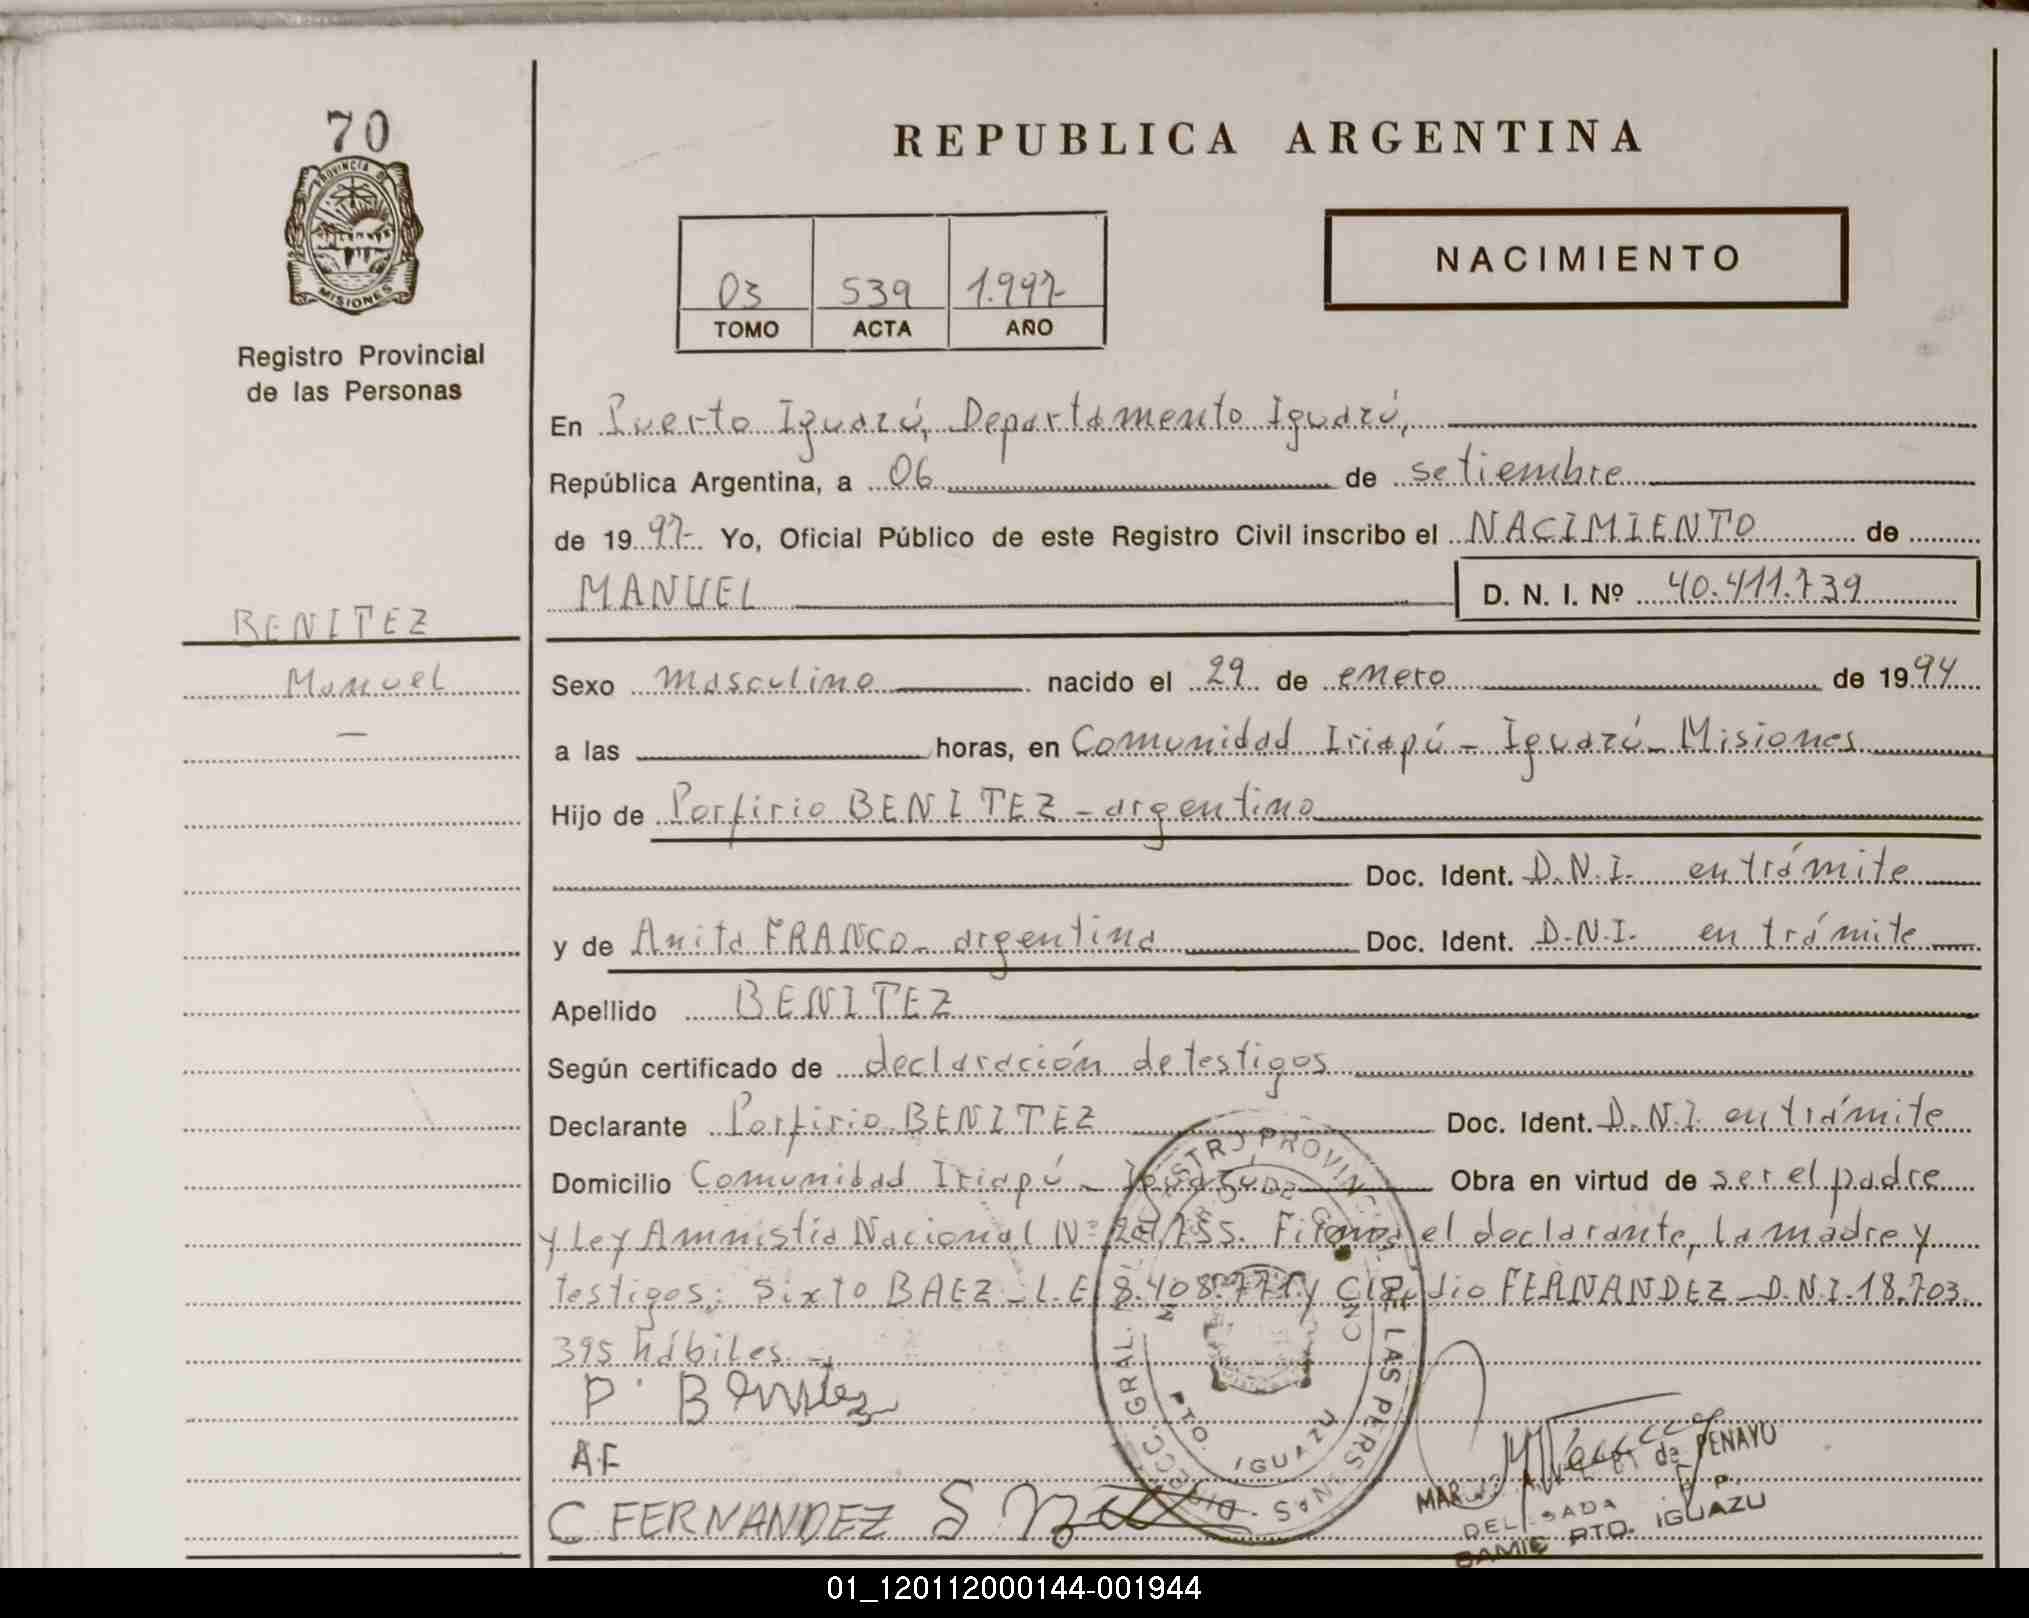 70
PROVINCIA DE
MISIONES
Registro Provincial
de las Personas
REPUBLICA ARGENTINA
03 539 1.997-
TOMO ACTA AÑO
NACIMIENTO
En Puerto Iguazú, Departamento Iguazú,
República Argentina, a 06 de setiembre
de 1997- Yo, Oficial Público de este Registro Civil inscribo el NACIMIENTO de
MANUEL D. N. I. Nº 40.411.739
BENITEZ
Manuel
Sexo masculino nacido el 29 de enero de 1994
a las horas, en Comunidad Iriapú - Iguazú - Misiones
Hijo de Porfirio BENITEZ - argentino
Doc. Ident. D.N.I. en trámite
y de Anita FRANCO - argentina Doc. Ident. D.N.I. en trámite
Apellido BENITEZ
Según certificado de declaración de testigos
Declarante Porfirio BENITEZ Doc. Ident. D.N.I. en trámite
Domicilio Comunidad Iriapú - Iguazú Obra en virtud de ser el padre
y Ley Amnistía Nacional Nº 24.755. Firman el declarante, la madre y
testigos: Sixto BAEZ - L.E. 8.408.771 y Claudio FERNANDEZ - D.N.I. 18.703.
395 hábiles.-
P. Benitez
AF
C FERNANDEZ
PTO. IGUAZU
de PENAYO
PTO. IGUAZU
01_120112000144-001944